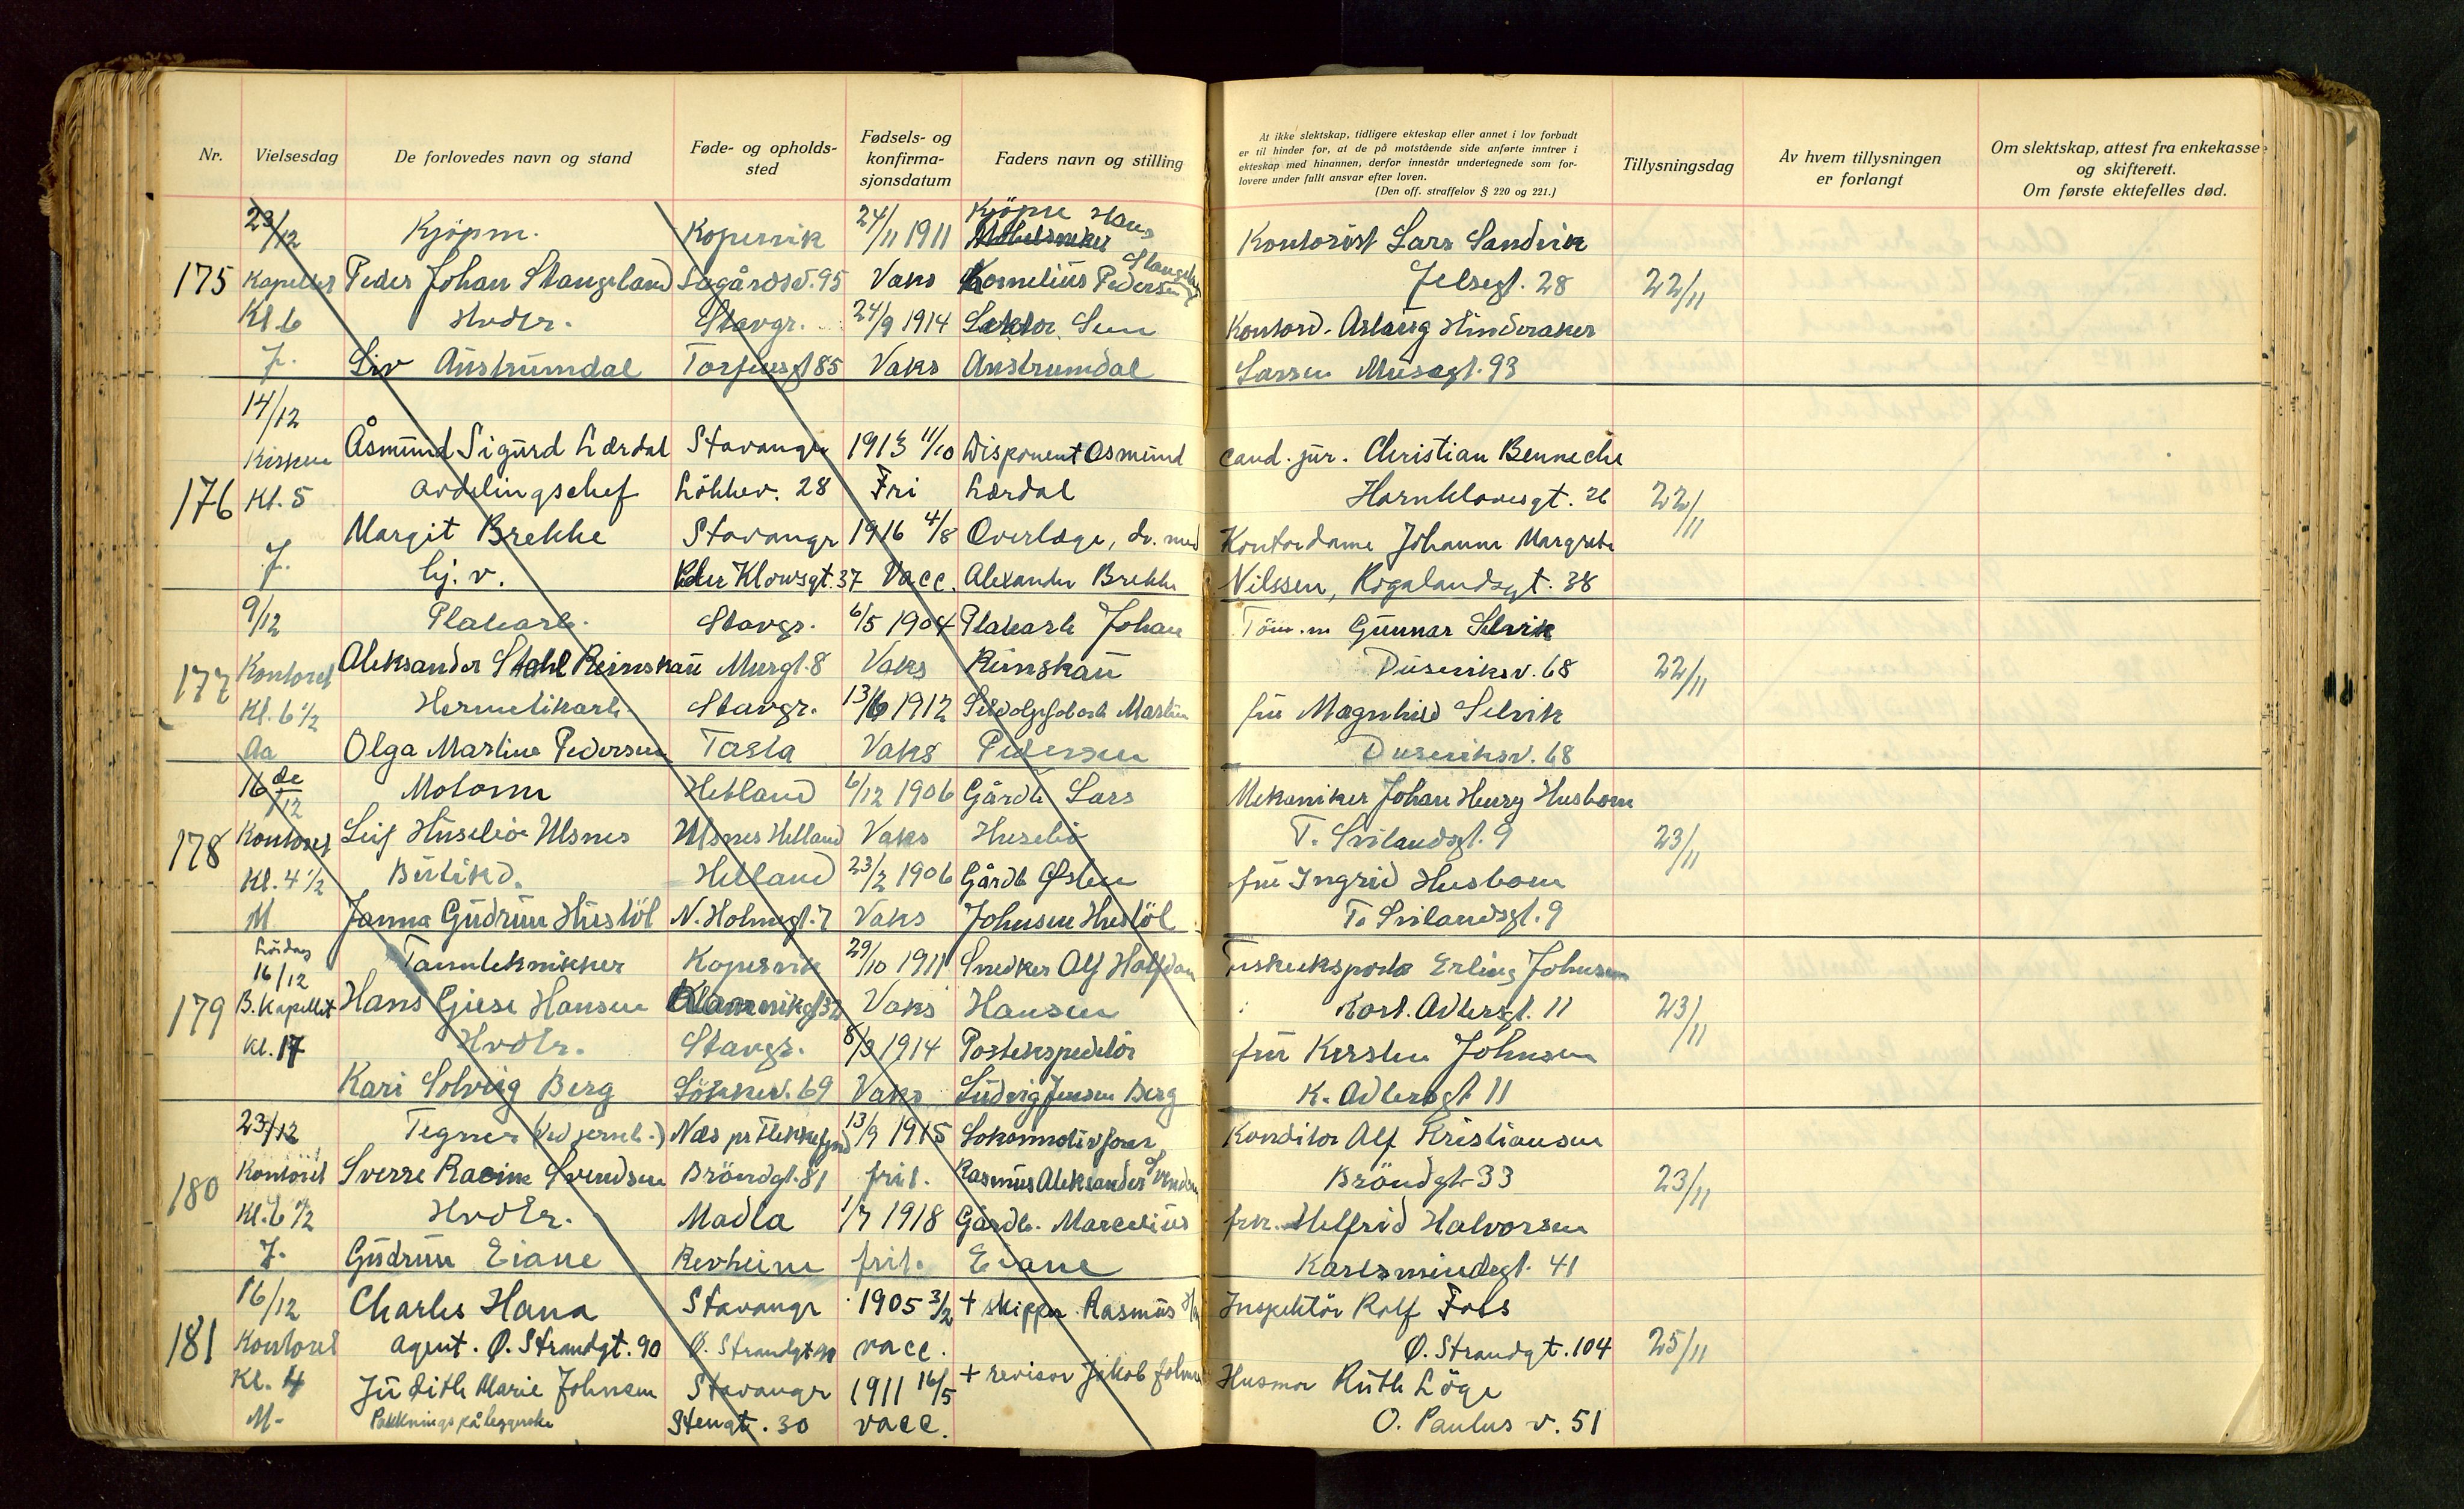 Nr.
Vielsesdag
De forlovedes navn og stand
Føde- og opholds-
sted
Fødsels- og
konfirma-
sjonsdatum
Faders navn og stilling
At ikke slektskap, tidligere ekteskap eller annet i lov forbudt
er til hinder for, at de på motstående side anførte inntrer i
ekteskap med hinannen, derfor innestår undertegnede som for-
lovere under fullt ansvar efter loven.
(Den off. straffelov § 220 og 221.)
Tillysningsdag
Av hvem tillysningen
er forlangt
Om slektskap, attest fra enkekasse
og skifterett.
Om første ektefelles død.
23/12 Kjöpm. Kopervik 24/11 1911 Kjöpm Hans Kontorist Lars Sandvik
175 Kapellet Peder Johan Stangeland Lagårdsv. 95 Vaks Kornelius Pedersen Stangeland Jelsegt. 28 22/11
Kl 6 Hvdtr. Stavgr. 24/9 1914 Lektor Kontord. Aslaug Hinderaker
J. Liv Austrumdal Torfeusgt 85 Vaks Austrumdal Larsen Musegt. 93
14/12
Kirken Åsmund Sigurd Lærdal Stavanger 1913 11/10 Disponent Asmund cand. jur. Christian Benneche
176 Kl. 5 avdelingschef Lökkev. 28 Fri Lærdal Harald 26 22/11
Margit Brekke Stavangr 1916 4/8 Overlæge, dr. med Kontordame Johanne Margrete
J. hj. v. Peder Klowsgt. 37 Vacc. Alexander Brekke Nilssen, Rogalandsgt. 38
9/12 Platearb. Stavgr. 6/5 1904 Platearb Johan Töm.m Gunnar Selvik
177 Kontoret Aleksander Stahl Reimskau Murgt. 8 Vaks Reimskau Duseviksv. 68 22/11
Kl. 6 1/2 Hermetikarb. Stavgr. 13/6 1912 Martin fru Magnhild Selvik
Aa Olga Martine Pedersen Tasta Vaks Pedersen Duseviksv. 68
16 de/12 Motorm Hetland 6/12 1906 Gårdb Lars Mekaniker Johan Henry Husbom
178 Kontoret Leif Husebö Ulsnes Ulsnes Hetland Vaks Husebö T. Svilandsgt. 9 23/11
Kl. 4 1/2 Butikd. Hetland 23/2 1906 Gårdb Østen fru Ingrid Husbom
M Janna Gudrun Hustöl N. Holmegt. 7 Vaks Johnsen Hustöl T. Svilandsgt. 9
Lördag
16/12 Tanntekniker Kopervik 29/10 1911 Snedker Alf Halfdan Erling Johnsen
179 B. Kapellet Hans Giese Hansen 32 Vaks Hansen Kort. Adlersgt. 11 23/11
Kl. 17 Hvdtr. Stavgr. 8/3 1914 Postekspeditör fru Kirsten Johnsen
Kari Solveig Berg Lökkev. 69 Vaks Ludvig Jensen Berg K. Adlersgt 11
23/12 Tegner (ved jernb.) Næs pr Flekkefjord 13/9 1915 Lokomotivförer Konditor Alf Kristiansen
180 Kontoret Sverre Racine Svendsen Bröndgt. 81 frit. Rasmus Aleksander Svendsen Bröndgt 33 23/11
Kl. 6 1/2 Hvdtr. Madla 1/7 1918 Gårdb. Marcelius frk. Helfrid Halvorsen
J. Gudrun Eiane Revheim frit. Eiane Karlsmindegt. 41
16/12 Charles Hana Stavangr 1905 3/2 + skipper Rasmus Inspektör Rolf Foss
181 Kontoret agent. Ø. Strandgt. 90 Ø. Strandgt 90 vacc. Ø. Strandgt. 104 25/11
Kl. 4 Judith Marie Johnsen Stavangr 1911 16/5 + revisor Jakob Johnsen Husmor Ruth Löge
M. Pakkningspåleggerske Stengt. 30 vacc. O. Paulus v. 51